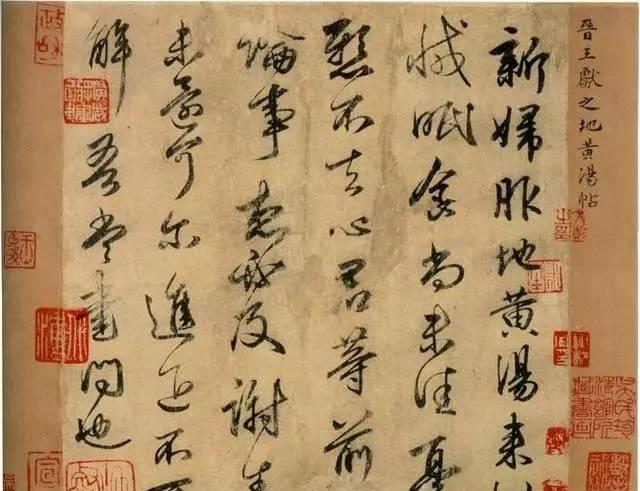 晉王獻之地黃湯帖
新婦服地黃湯来
減眠食尚未佳憂
懸不去心君等前
論事想必及謝生
未還可尔進退不
解吾當書問也